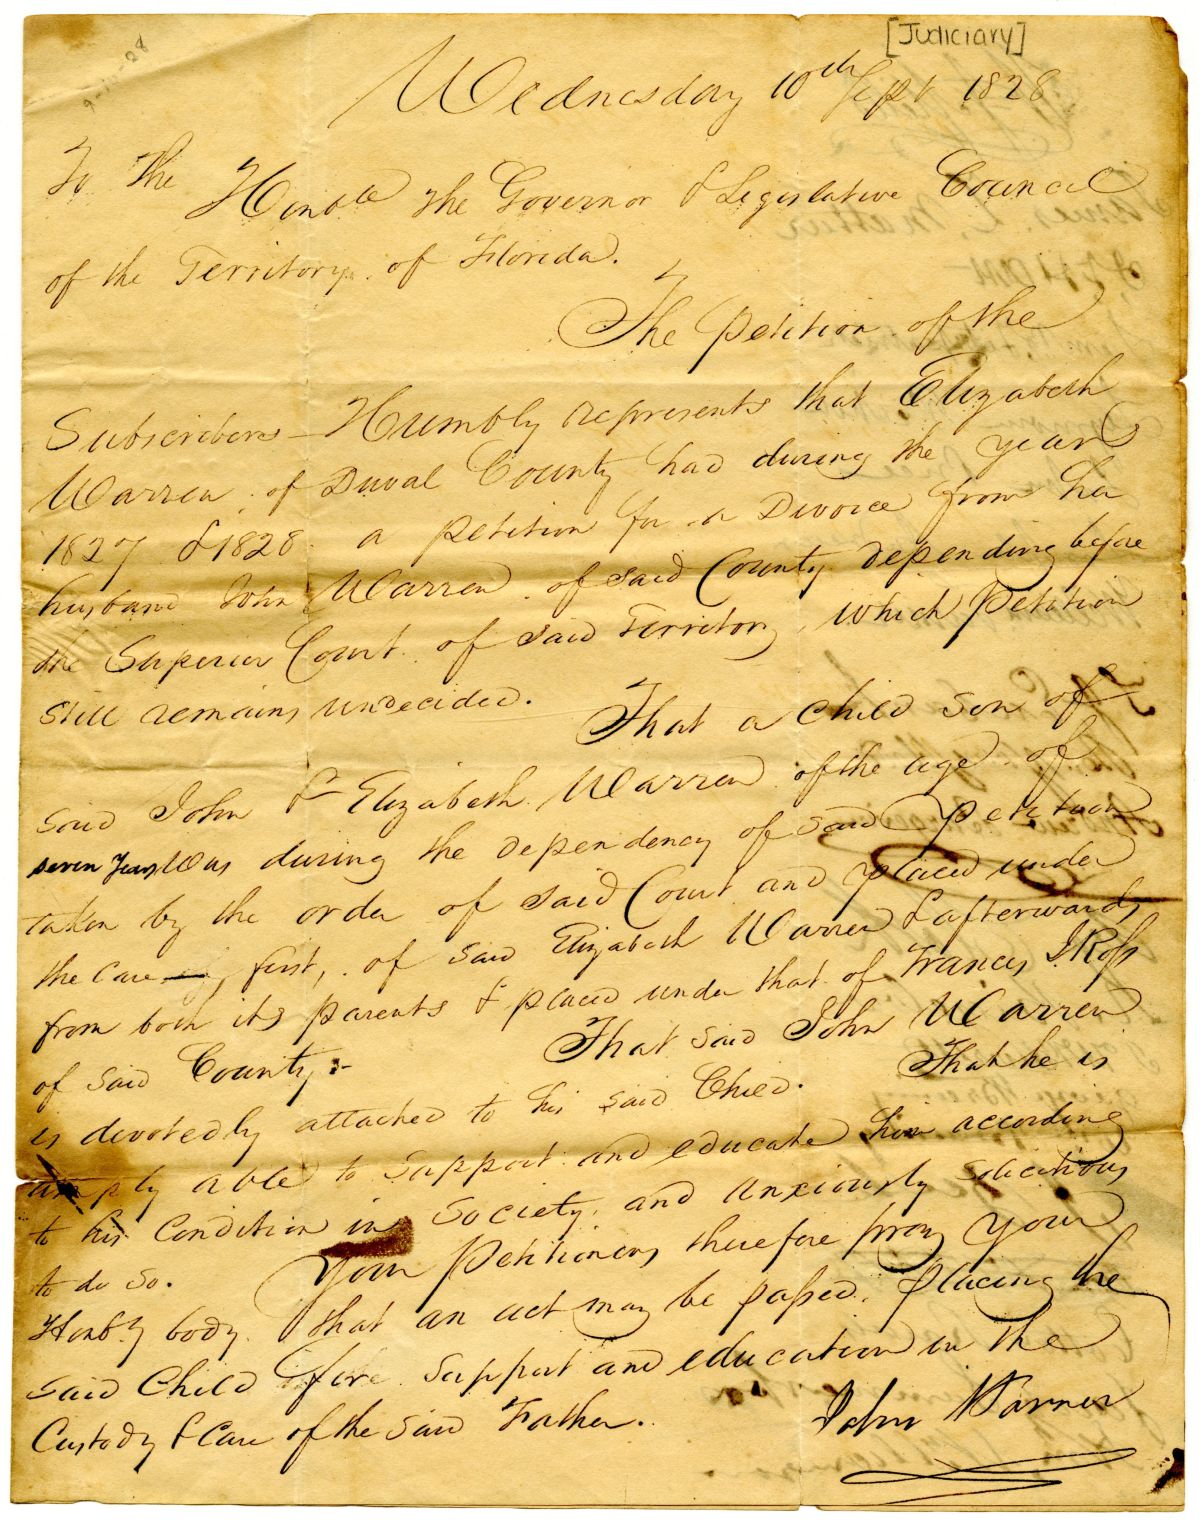 [Judiciary]
9-10-28
Wednesday 10th Sept 1828
To the Honble the Governor & Legislative Council
of the Territory of Florida.
The petition of the
Subscribers Humbly represents that Elizabeth
Warren of Duval County had during the years
1827 & 1828 a petition for a Divorce from her
husband John Warren of said County depending before
the Superior Court of said Territory, which petition
still remains undecided.
That a child son of
said John & Elizabeth Warren of the age of
seven years was during the dependency of said petition
taken by the order of said Court and placed under
the care first, of said Elizabeth Warren & afterwards
from both its parents & placed under that of Francis J Ross
of said County:-
That said John Warren
is devotedly attached to his said Child. That he is
amply able to support and educate him according
to his Condition in Society, and anxiously solicitous
to do so.
Your Petitioners therefore pray your
Honbly body that an act may be passed, placing the
said Child for support and education in the
Custody & Care of the said Father.
John Warren